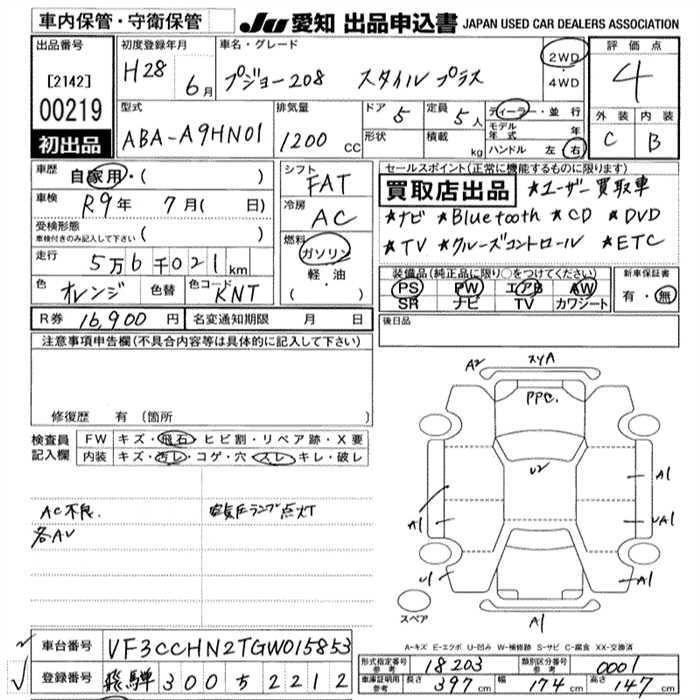 車内保管・守衛保管 JU 愛知 出品申込書 JAPAN USED CAR DEALERS ASSOCIATION
出品番号 [2142] 00219 初出品
初度登録年月 H28 6月
車名・グレード プジョー208 スタイルプラス
2WD・4WD
評価点 4
外装 内装
C B
型式 ABA-A9HN01
排気量 1200cc
ドア 5 定員 5人
形状 積載 kg
ディーラー・並行
モデル年式 年
ハンドル 左 右
車歴 自家用・( )
車検 R9年 7月( 日)
受検形態 車検付きのみ記入して下さい ( )
走行 5万6千021km
色 オレンジ 色替 色コード KNT
シフト FAT
冷房 AC
燃料 ガソリン・軽・油・( )
セールスポイント(正常に機能するものに限ります)
買取店出品 ★ユーザー買取車
★ナビ ★Bluetooth ★CD ★DVD
★TV ★クルーズコントロール ★ETC
装備品(純正品に限り○をつけてください) 新車保証書
PS PW エアB AW 有・無
SR ナビ TV カワシート
R券 16,900円 名変通知期限 月 日
後日品
注意事項申告欄(不具合内容等は具体的に記入して下さい)
修復歴 有(箇所 )
検査員記入欄
FW キズ・飛石・ヒビ割・リペア跡・X要
内装 キズ・汚レ・コゲ・穴・スレ・キレ・破レ
AC不良.
空気圧ランプ点灯
各AU
A2 スリA
PPC.
U2
A1 A1
A1 UA1
U1 A1
スペア A1
A-キズ E-エクボ U-凹み W-補修跡 S-サビ C-腐食 XX-交換済
車台番号 VF3CCHN2TGW015853
登録番号 飛騨 300 ち 2212
形式指定番号 参考 18203 類別区分番号 参考 0001
車庫証明用 参考 長さ 397cm 幅 174cm 高さ 147cm